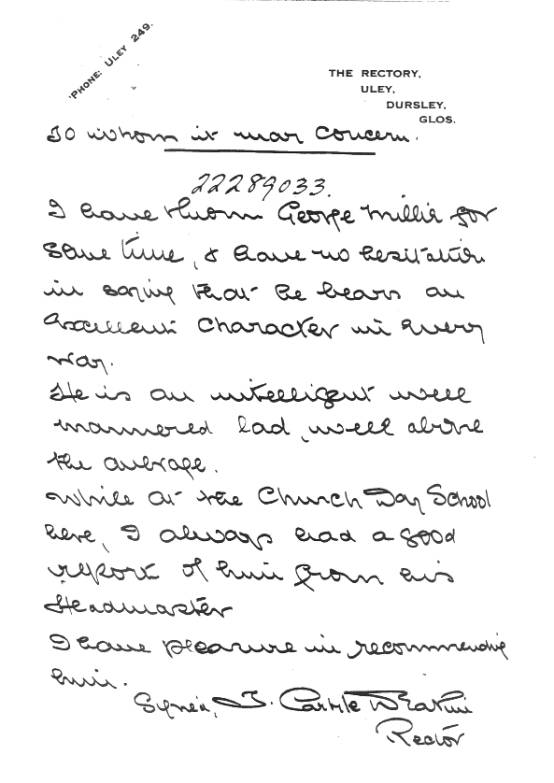 'PHONE: ULEY 249.
THE RECTORY,
ULEY,
DURSLEY,
GLOS.
To whom it may Concern.
22289033.
I have known George Millie for
some time, & have no hesitation
in saying that he bears an
excellent character in every
way.
He is an intelligent well
mannered lad, well above
the average.
While at the Church Day School
here, I always had a good
report of him from his
Headmaster
I have pleasure in recommending
him.
Signed,
Rector